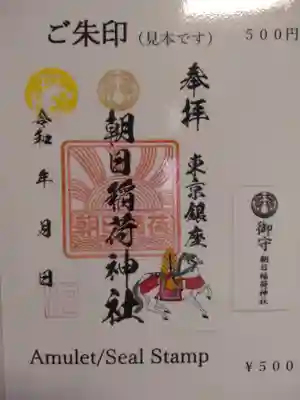 ご朱印（見本です） 500円
奉拝
東京銀座
朝日稲荷神社
令和 年 月 日
御守
朝日稲荷神社
Amulet/Seal Stamp ¥500